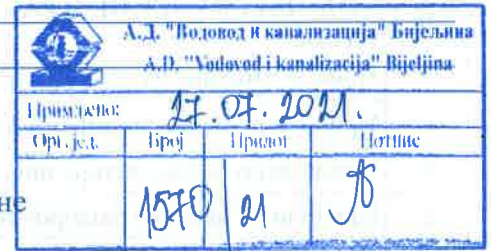 А.Д. "Водовод и канализација" Бијељина
A.D. "Vodovod i kanalizacija" Bijeljina
Примљено: 27.07.2021.
Орг. јед. Број Прилог Потпис
1570 21
не